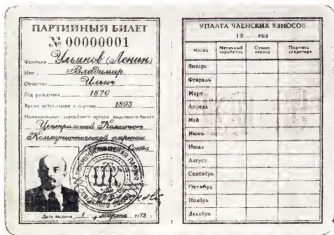 ПАРТИЙНЫЙ БИЛЕТ
№ 00000001
Фамилия Ульянов (Ленин)
Имя Владимир
Отчество Ильич
Год рождения 1870
Время вступления в партию 1893
Наименование партийного органа, выдавшего билет
Центральный Комитет
Коммунистической партии
Советского Союза
Дата выдачи 1 марта 1973
УПЛАТА ЧЛЕНСКИХ ВЗНОСОВ
19 год
Месяц Месячный заработок Сумма взноса Подпись секретаря
Январь
Февраль
Март
Апрель
Май
Июнь
Июль
Август
Сентябрь
Октябрь
Ноябрь
Декабрь